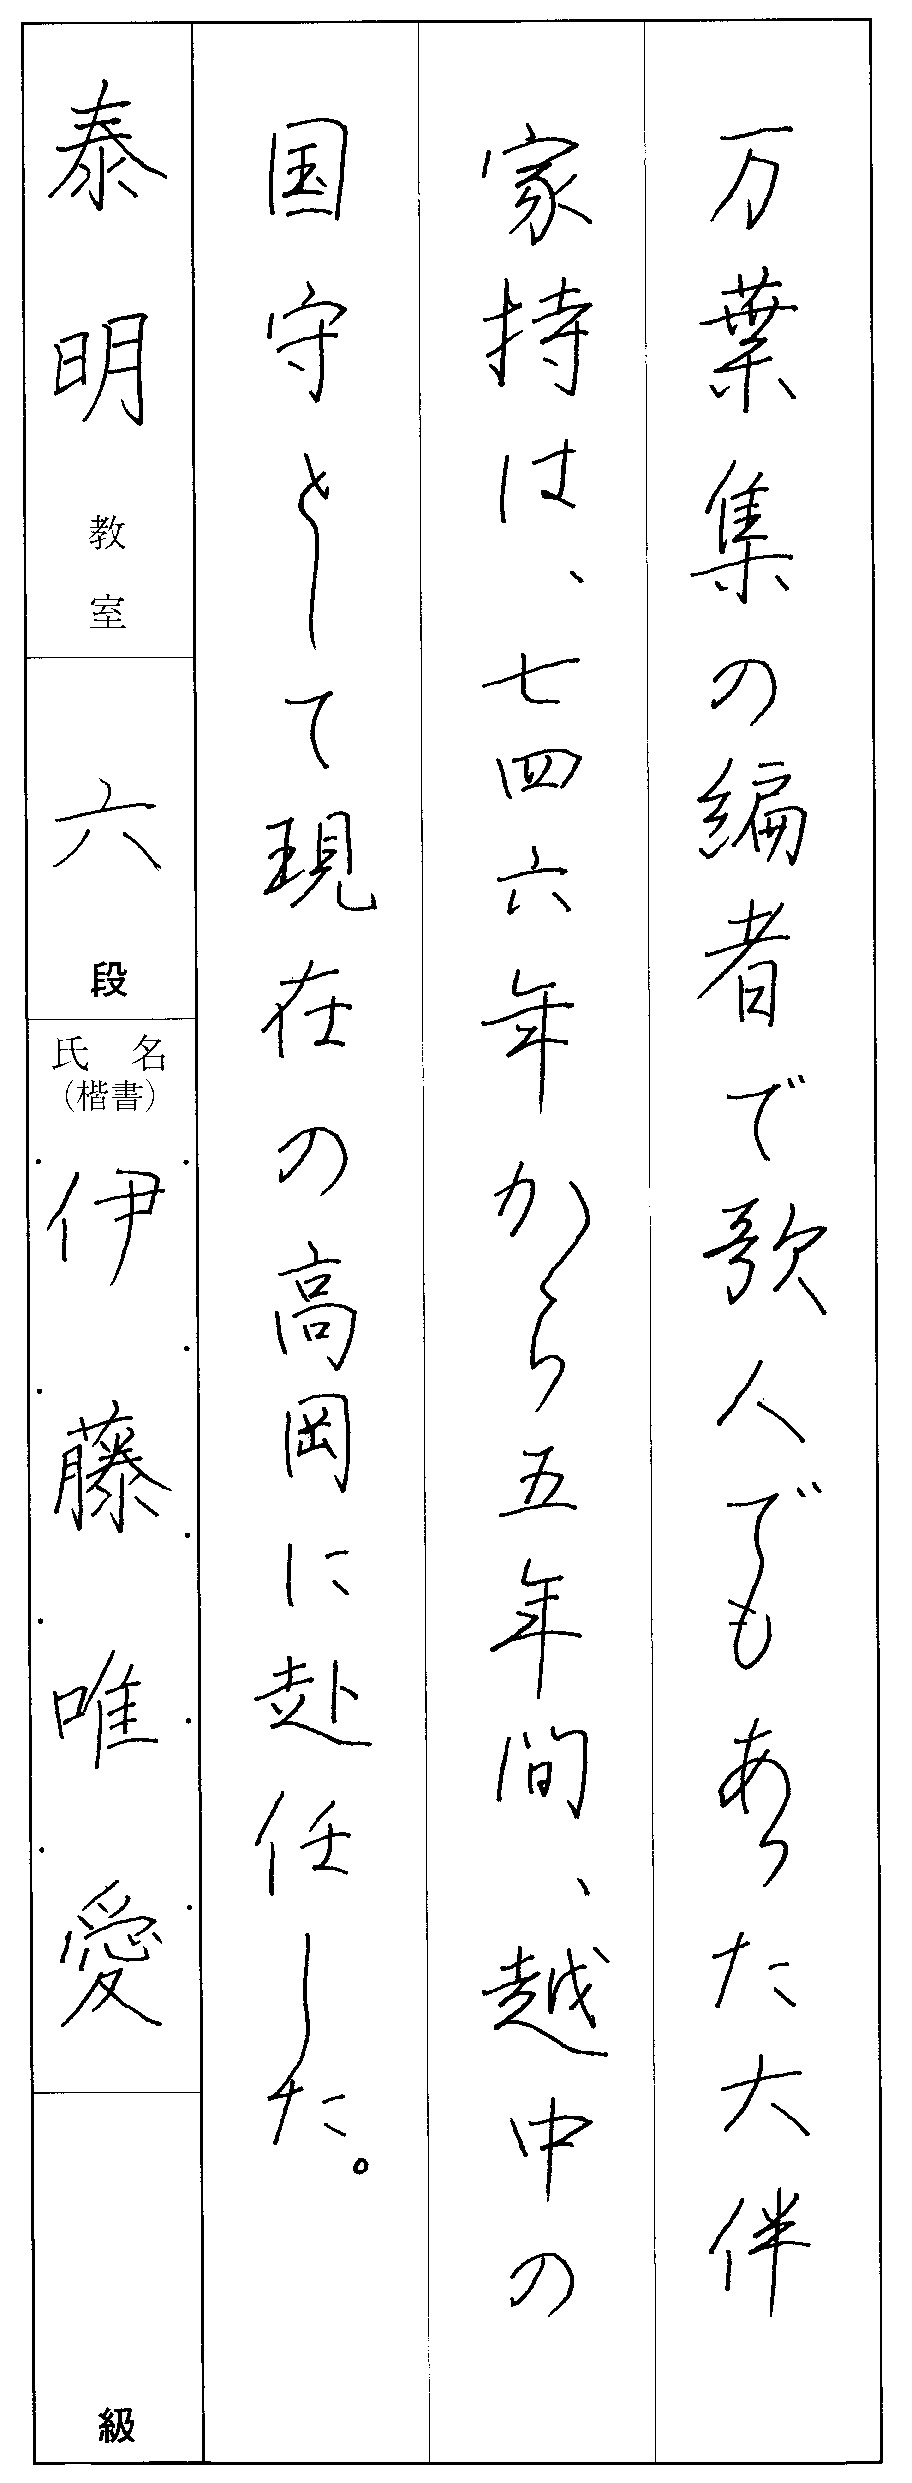 万葉集の編者で歌人でもあった大伴
家持は、七四六年から五年間、越中の
国守として現在の高岡に赴任した。
泰明教室
六段
氏名
(楷書)
伊藤唯愛
級